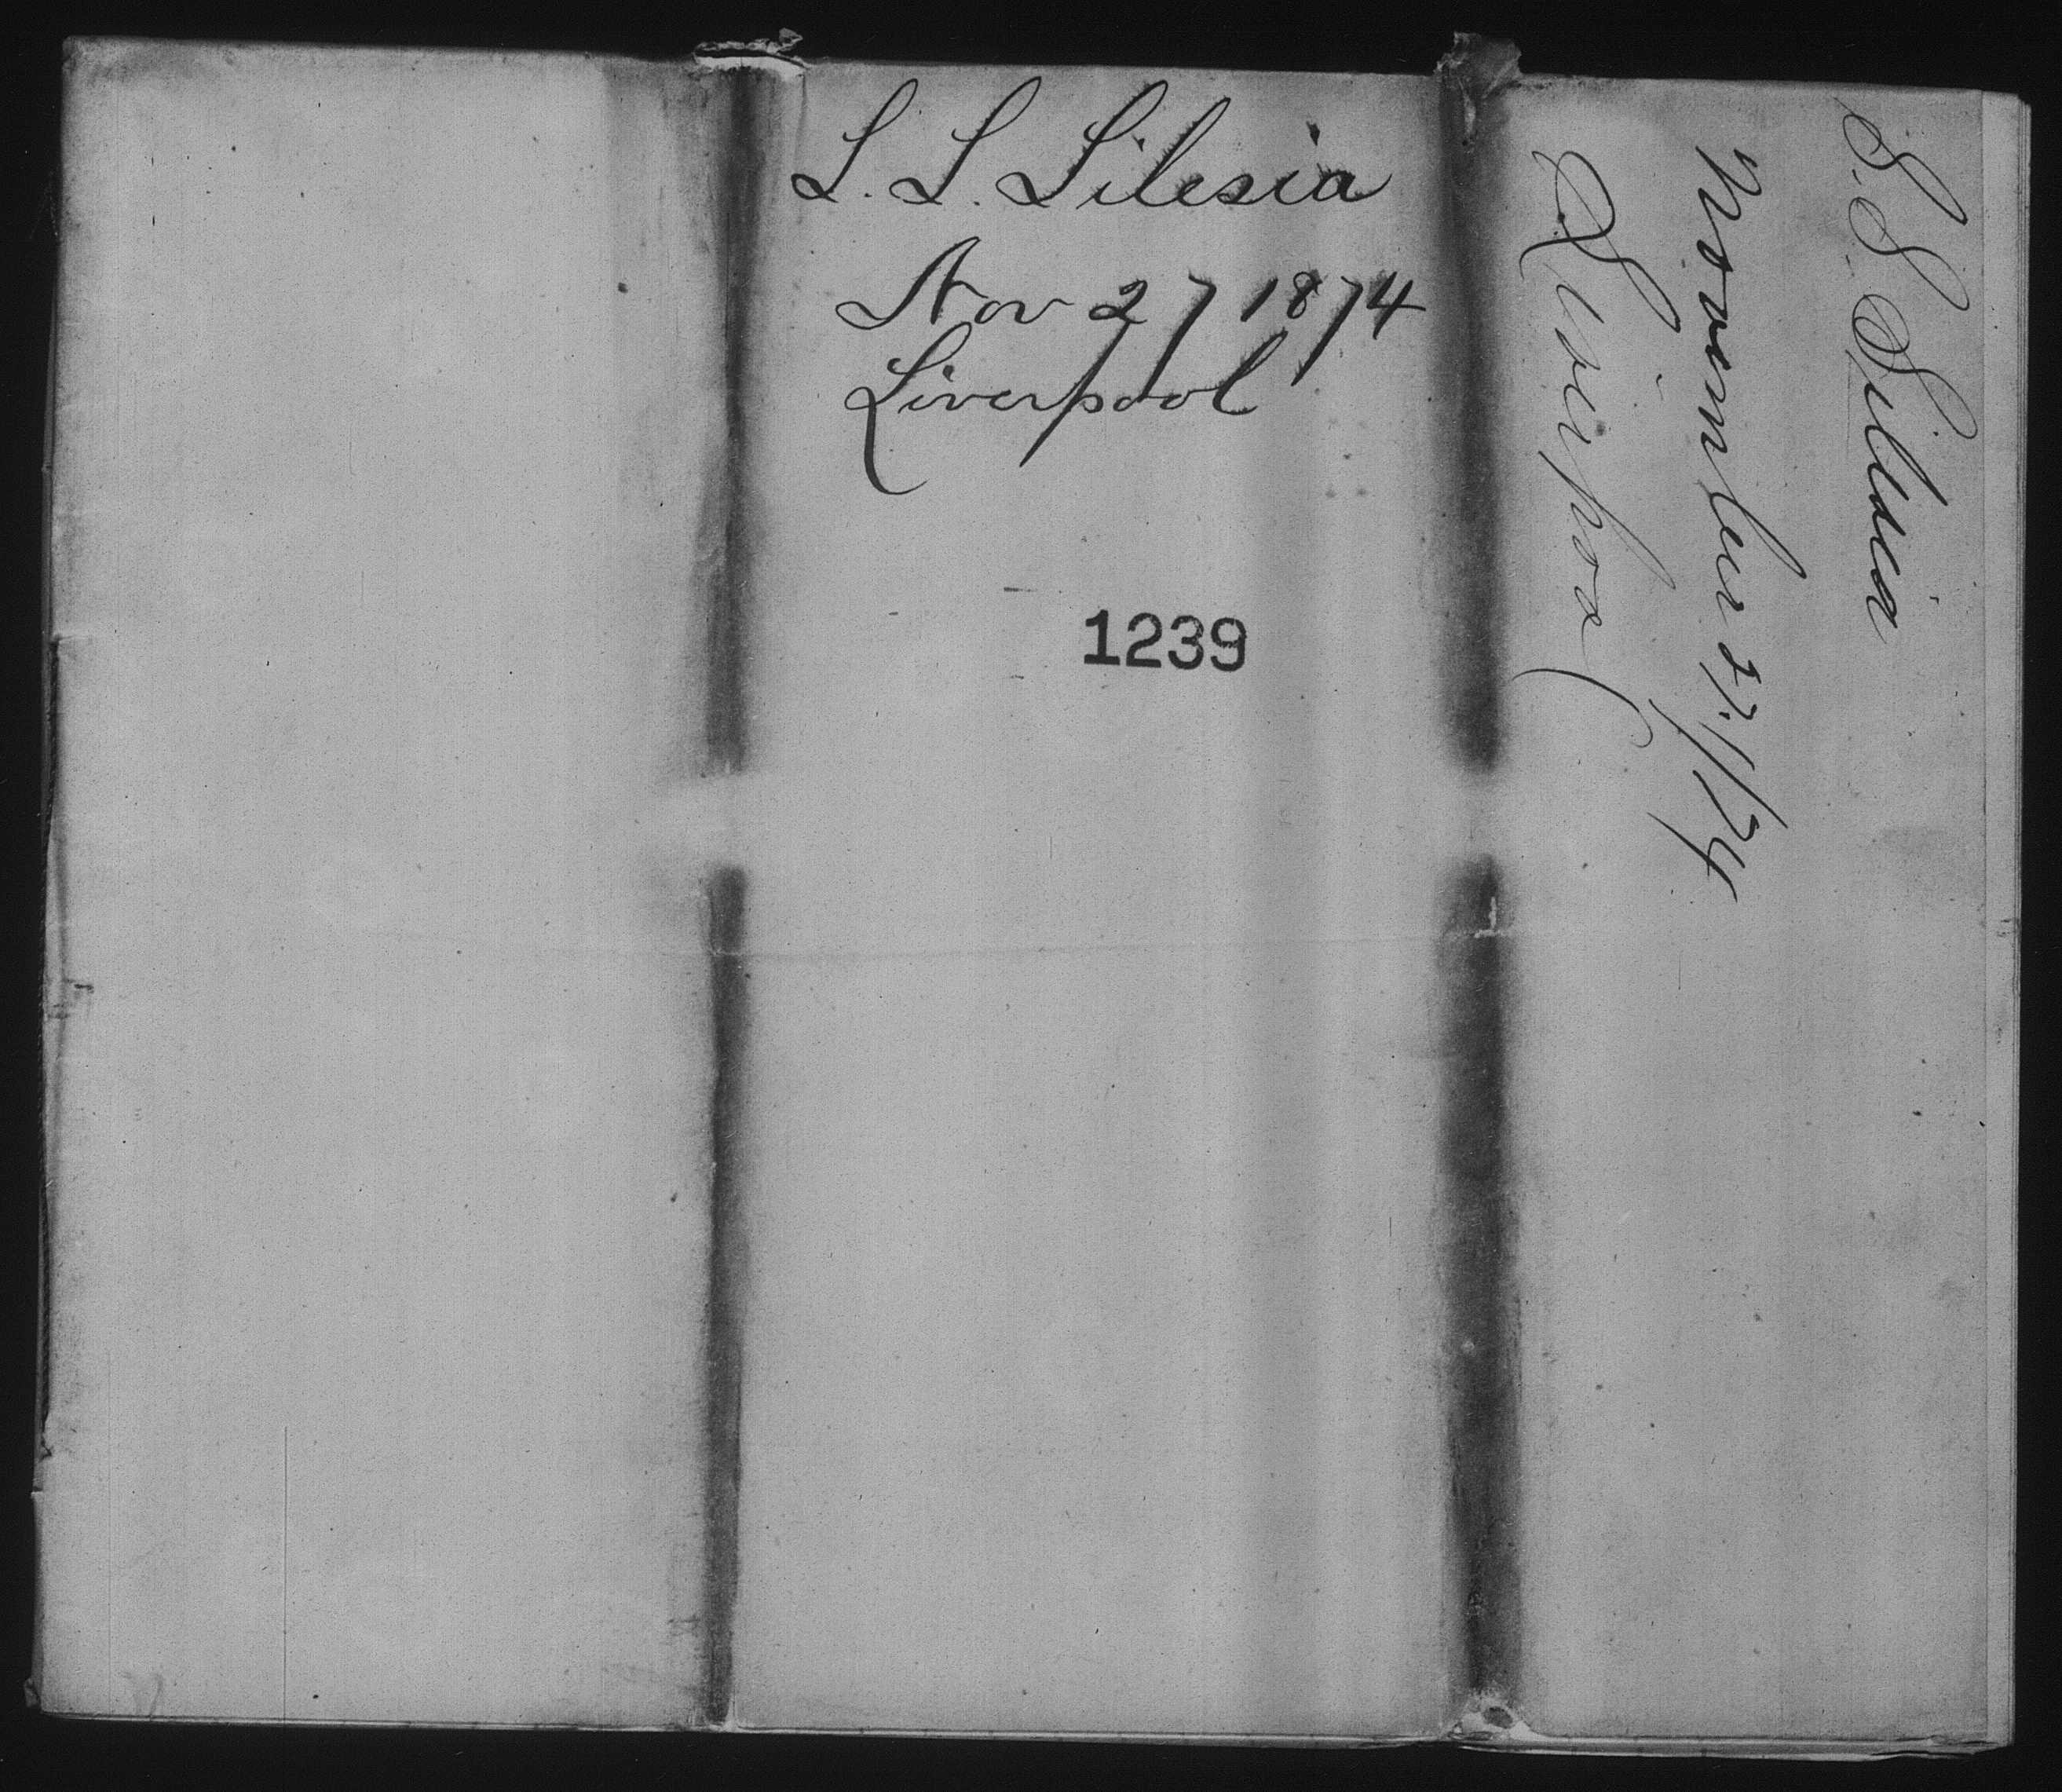 S. S. Silesia
Nov 27 1874
Liverpool
1239
S. S. Silesia
November 27/74
Liverpool